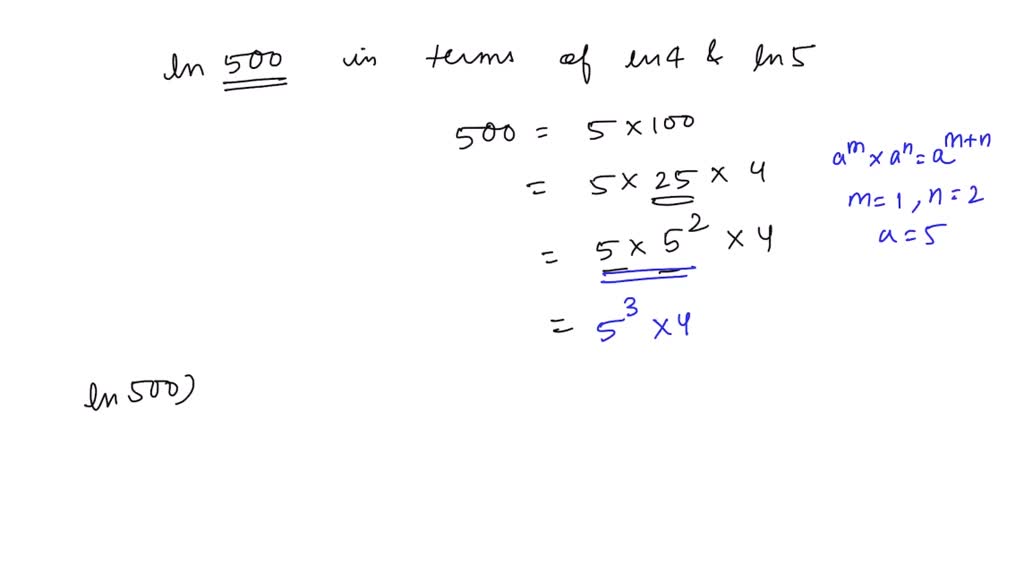 ln 500 in terms of ln4 & ln5
500 = 5 × 100
= 5 × 25 × 4
= 5 × 5² × 4
= 5³ × 4
aᵐ × aⁿ = aᵐ⁺ⁿ
m = 1, n = 2
a = 5
ln 500)